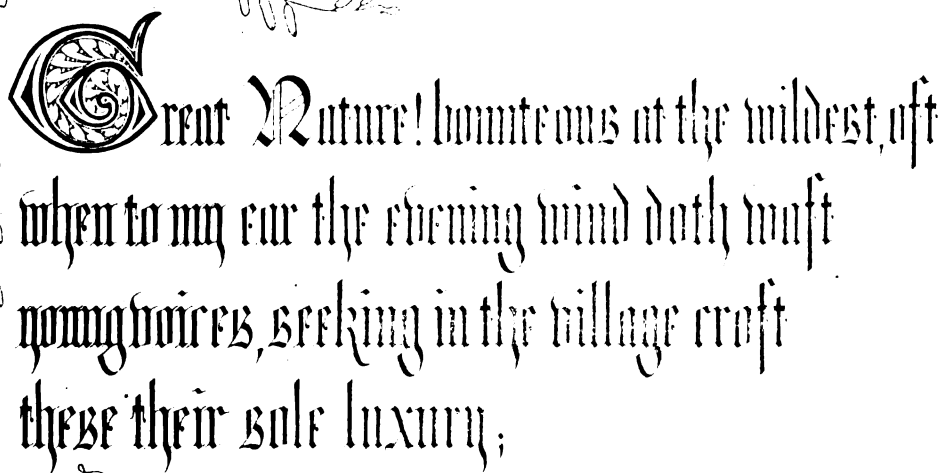 Great Nature! bounteous at the wildest, oft
when to my ear the evening wind doth waft
young voices, seeking in the village croft
these their sole luxury;